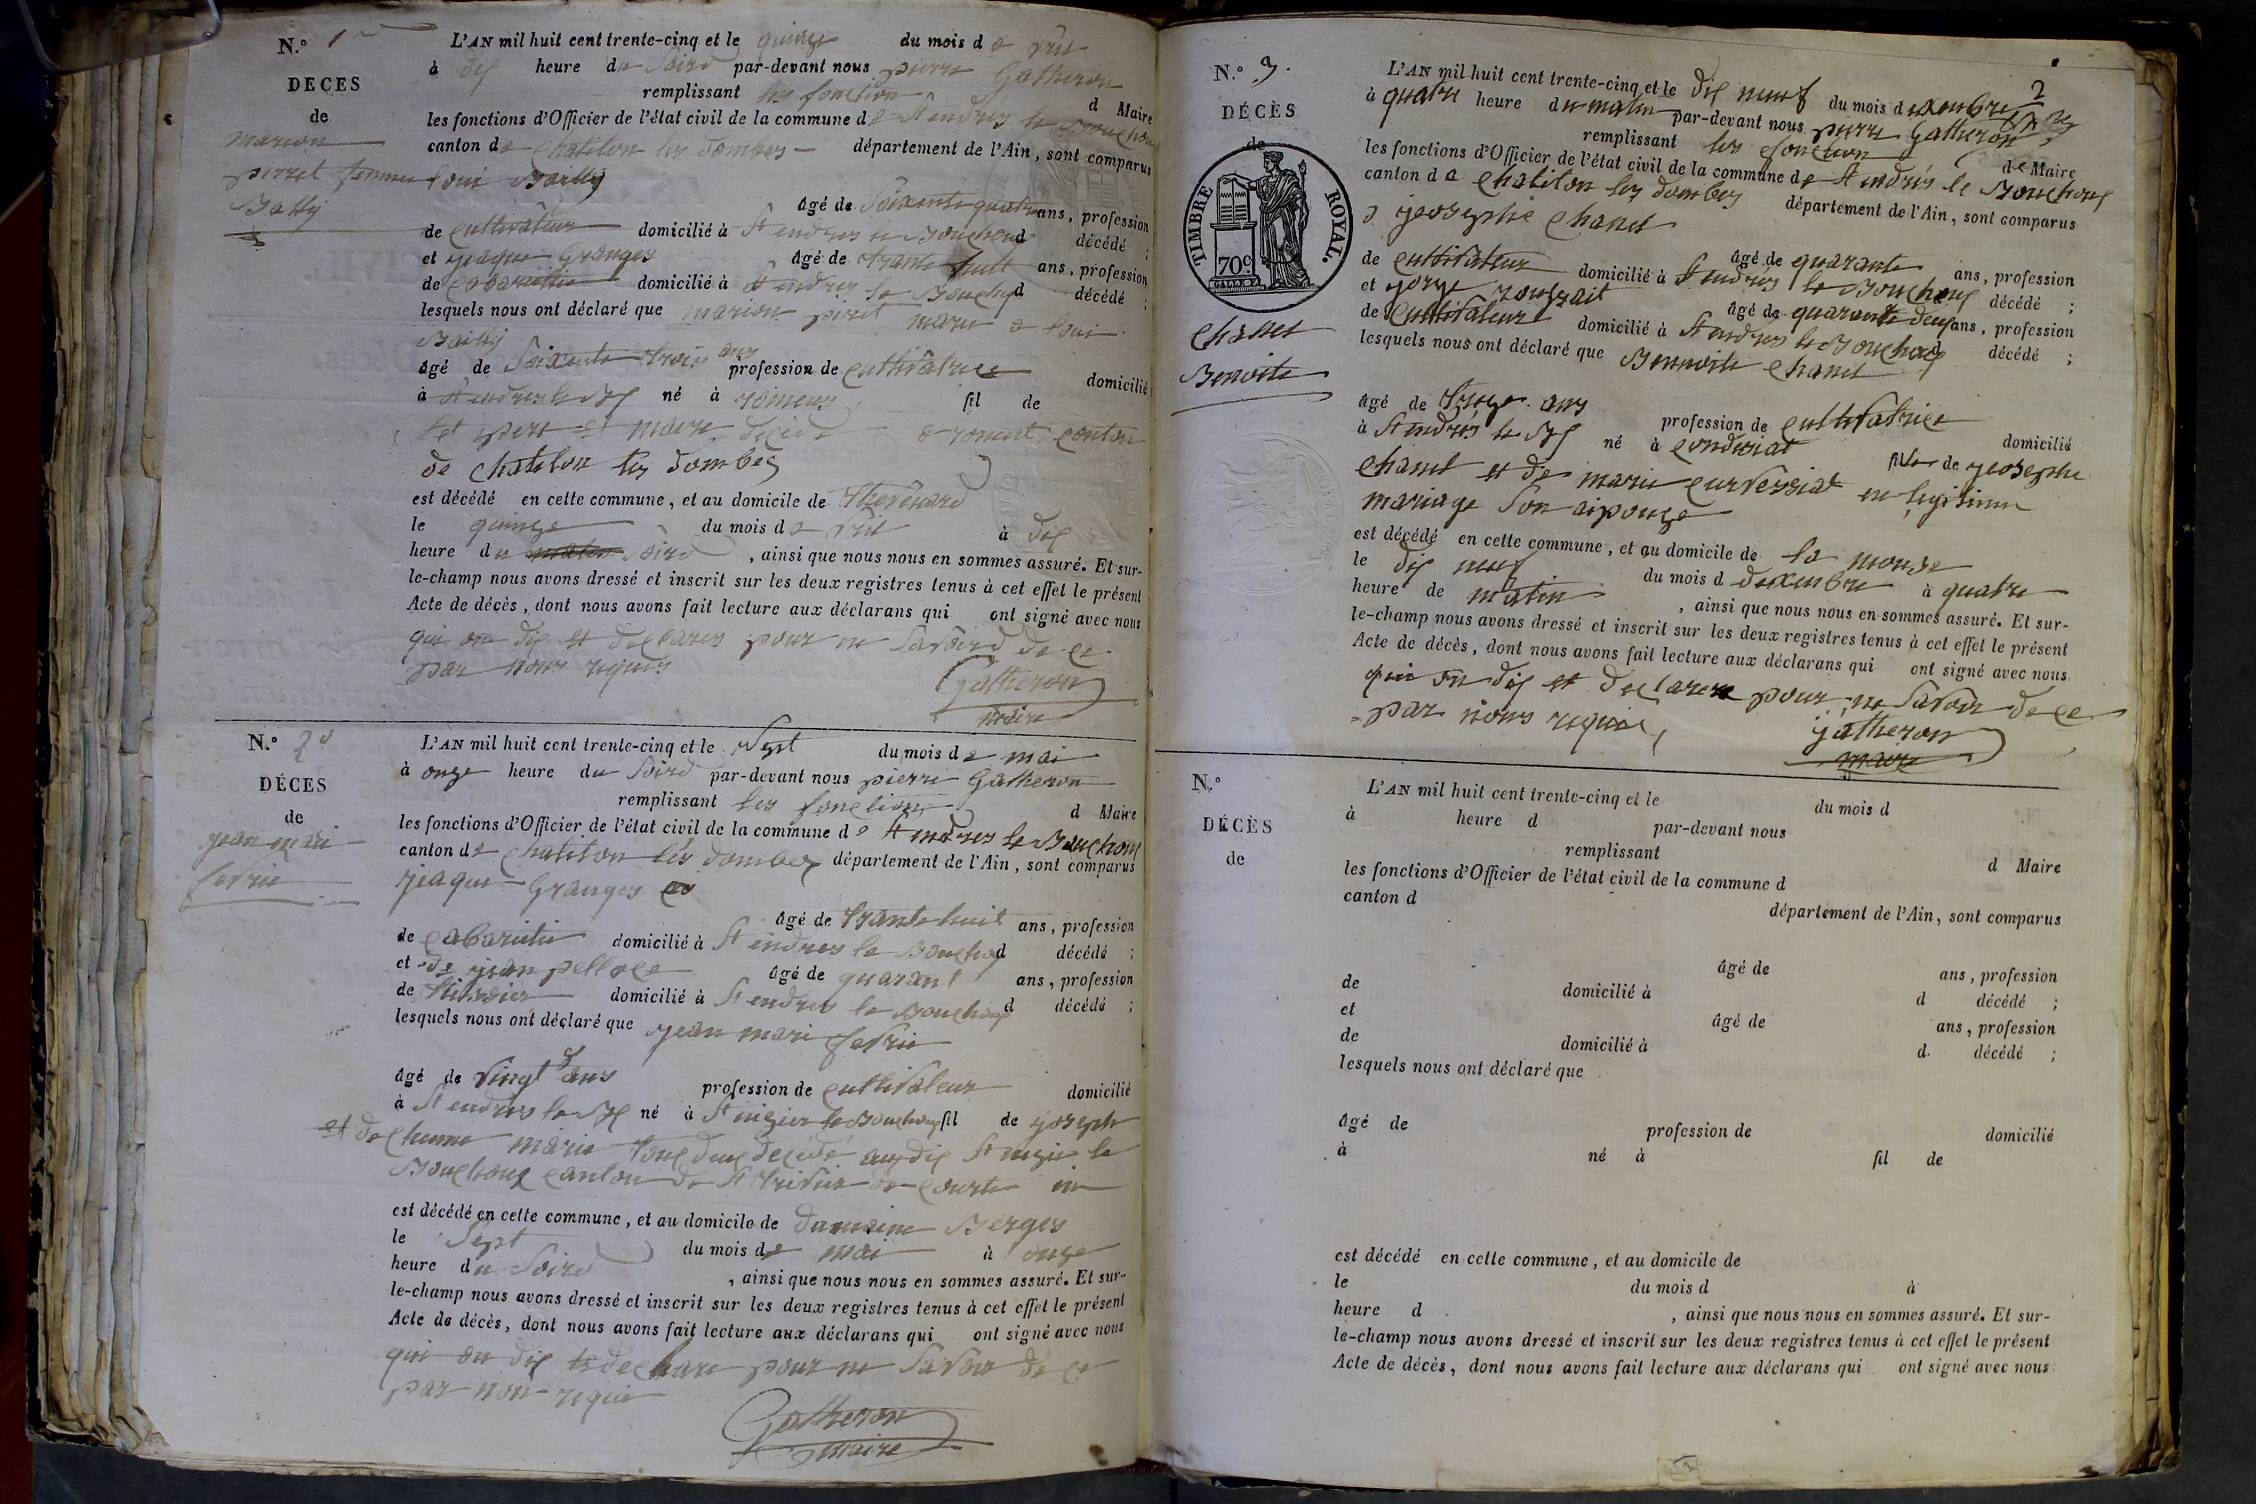 N.° 1
DÉCES
de
marion
pirret femme
Bailly
L'AN mil huit cent trente-cinq et le quinze du mois d a vril
à dix heure du soird par-devant nous pierre Gatheron
remplissant les fonction d Maire
les fonctions d'Officier de l'état civil de la commune de St endres le Bouchoux
canton de Chatilon les dombes département de l'Ain, sont comparus
loui Bailly
âgé de Soixante quatre ans, profession
de cultivateur domicilié à St endres le Bouchoud décédé ;
et jeaque Granges âgé de trante huit ans, profession
de cabarittier domicilié à St endres le Bouchoux d décédé ;
lesquels nous ont déclaré que marion pirret marie a loui
Bailly
âgé de Soixente trois ans profession de cultivatrice domicilié
à St endres le Bx né à romens fil de
pere et mere decede a roment conton
de Chatilon les dombes
est décédé en cette commune, et au domicile de thevenard
le quinze du mois d a vril à dix
heure du soird , ainsi que nous nous en sommes assuré. Et sur-
le-champ nous avons dressé et inscrit sur les deux registres tenus à cet effet le présent
Acte de décès, dont nous avons fait lecture aux déclarans qui ont signé avec nous
qui on dis et declares pour ne savoird de ce
par nous requis
Gatheron
maire
N.° 2
DÉCES
de
jean mari
fevrie
L'AN mil huit cent trente-cinq et le Sept du mois de mai
à onze heure du Soird par-devant nous pierre Gatheron
remplissant les fonction d Maire
les fonctions d'Officier de l'état civil de la commune de St endres le Bouchoux
canton de Chatilon les dombes département de l'Ain, sont comparus
jeaque Granges
âgé de trante huit ans, profession
de cabaritie domicilié à St endres le Bouchoud décédé ;
et de jean pellace âgé de quarant ans, profession
de tissier domicilié à St endres le Bouchoux d décédé ;
lesquels nous ont déclaré que jean mari fevrie
âgé de vingt ans profession de cultivateur domicilié
à St endres le Bx né à St nizier le Bouchoux fil de joseph
et de marie tous deux décédé audis St nizie le
Bouchoux canton de St trivier de courte
est décédé en cette commune, et au domicile de damaine Berges
le Sept du mois de mai à onze
heure du Soird , ainsi que nous nous en sommes assuré. Et sur-
le-champ nous avons dressé et inscrit sur les deux registres tenus à cet effet le présent
Acte de décès, dont nous avons fait lecture aux déclarans qui ont signé avec nous
qui on dis declare pour ne savoir de ce
par non requi
Gatheron
maire
2
N.° 3.
DÉCÈS
de
TIMBRE ROYAL.
70c.
Chanel
Benoite
L'AN mil huit cent trente-cinq et le dix neuf du mois dexembre
à quatre heure du matin par-devant nous pierre Gatheron
remplissant les fonction de Maire
les fonctions d'Officier de l'état civil de la commune de St endrés le Bouchoux
canton d a Chatilon les dombes département de l'Ain, sont comparus
jeosephe Chanel
âgé de quarante ans, profession
de cultivateur domicilié à St endrés le Bouchoux décédé ;
et jorge âgé de quarante deux ans, profession
de Cultivateur domicilié à St endres le Bouchoux d décédé ;
lesquels nous ont déclaré que Bennoite Chanel
âgé de treize ans profession de cultivatrice domicilié
à St endrés le Bx né à condesiat fille de jeosephe
Chanel et de marie curvessiat en legitime
mariage son aipouze
est décédé en cette commune, et au domicile de la
le dix neuf du mois d dexembre à quatre
heure de matin , ainsi que nous nous en sommes assuré. Et sur-
le-champ nous avons dressé et inscrit sur les deux registres tenus à cet effet le présent
Acte de décès, dont nous avons fait lecture aux déclarans qui ont signé avec nous
qui on dis et declarere pour ne savoir de ce
par nous requise
gatheron
maire
N.°
DÉCÈS
de
L'AN mil huit cent trente-cinq et le du mois d
à heure d par-devant nous
remplissant d Maire
les fonctions d'Officier de l'état civil de la commune d
canton d département de l'Ain, sont comparus
âgé de ans, profession
de domicilié à d décédé ;
et âgé de ans, profession
de domicilié à d. décédé ;
lesquels nous ont déclaré que
âgé de profession de domicilié
à né à fil de
est décédé en cette commune, et au domicile de
le du mois d à
heure d , ainsi que nous nous en sommes assuré. Et sur-
le-champ nous avons dressé et inscrit sur les deux registres tenus à cet effet le présent
Acte de décès, dont nous avons fait lecture aux déclarans qui ont signé avec nous